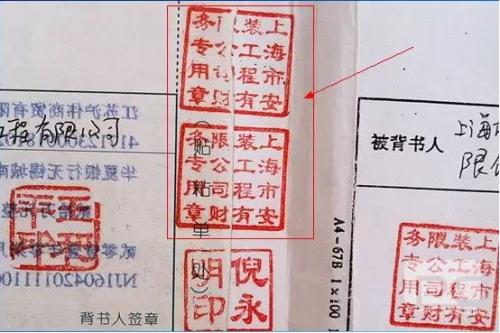 上海市安
装工程有
限公司财
务专用章
江苏沪伟商贸有限
工程有限公司
华夏银行无锡城南
上海市安
装工程有
限公司财
务专用章
粘贴单处）
倪永
明印
背书人签章
A4-67B 1×100
被背书人
上海
限
上海市安
装工程有
限公司财
务专用章